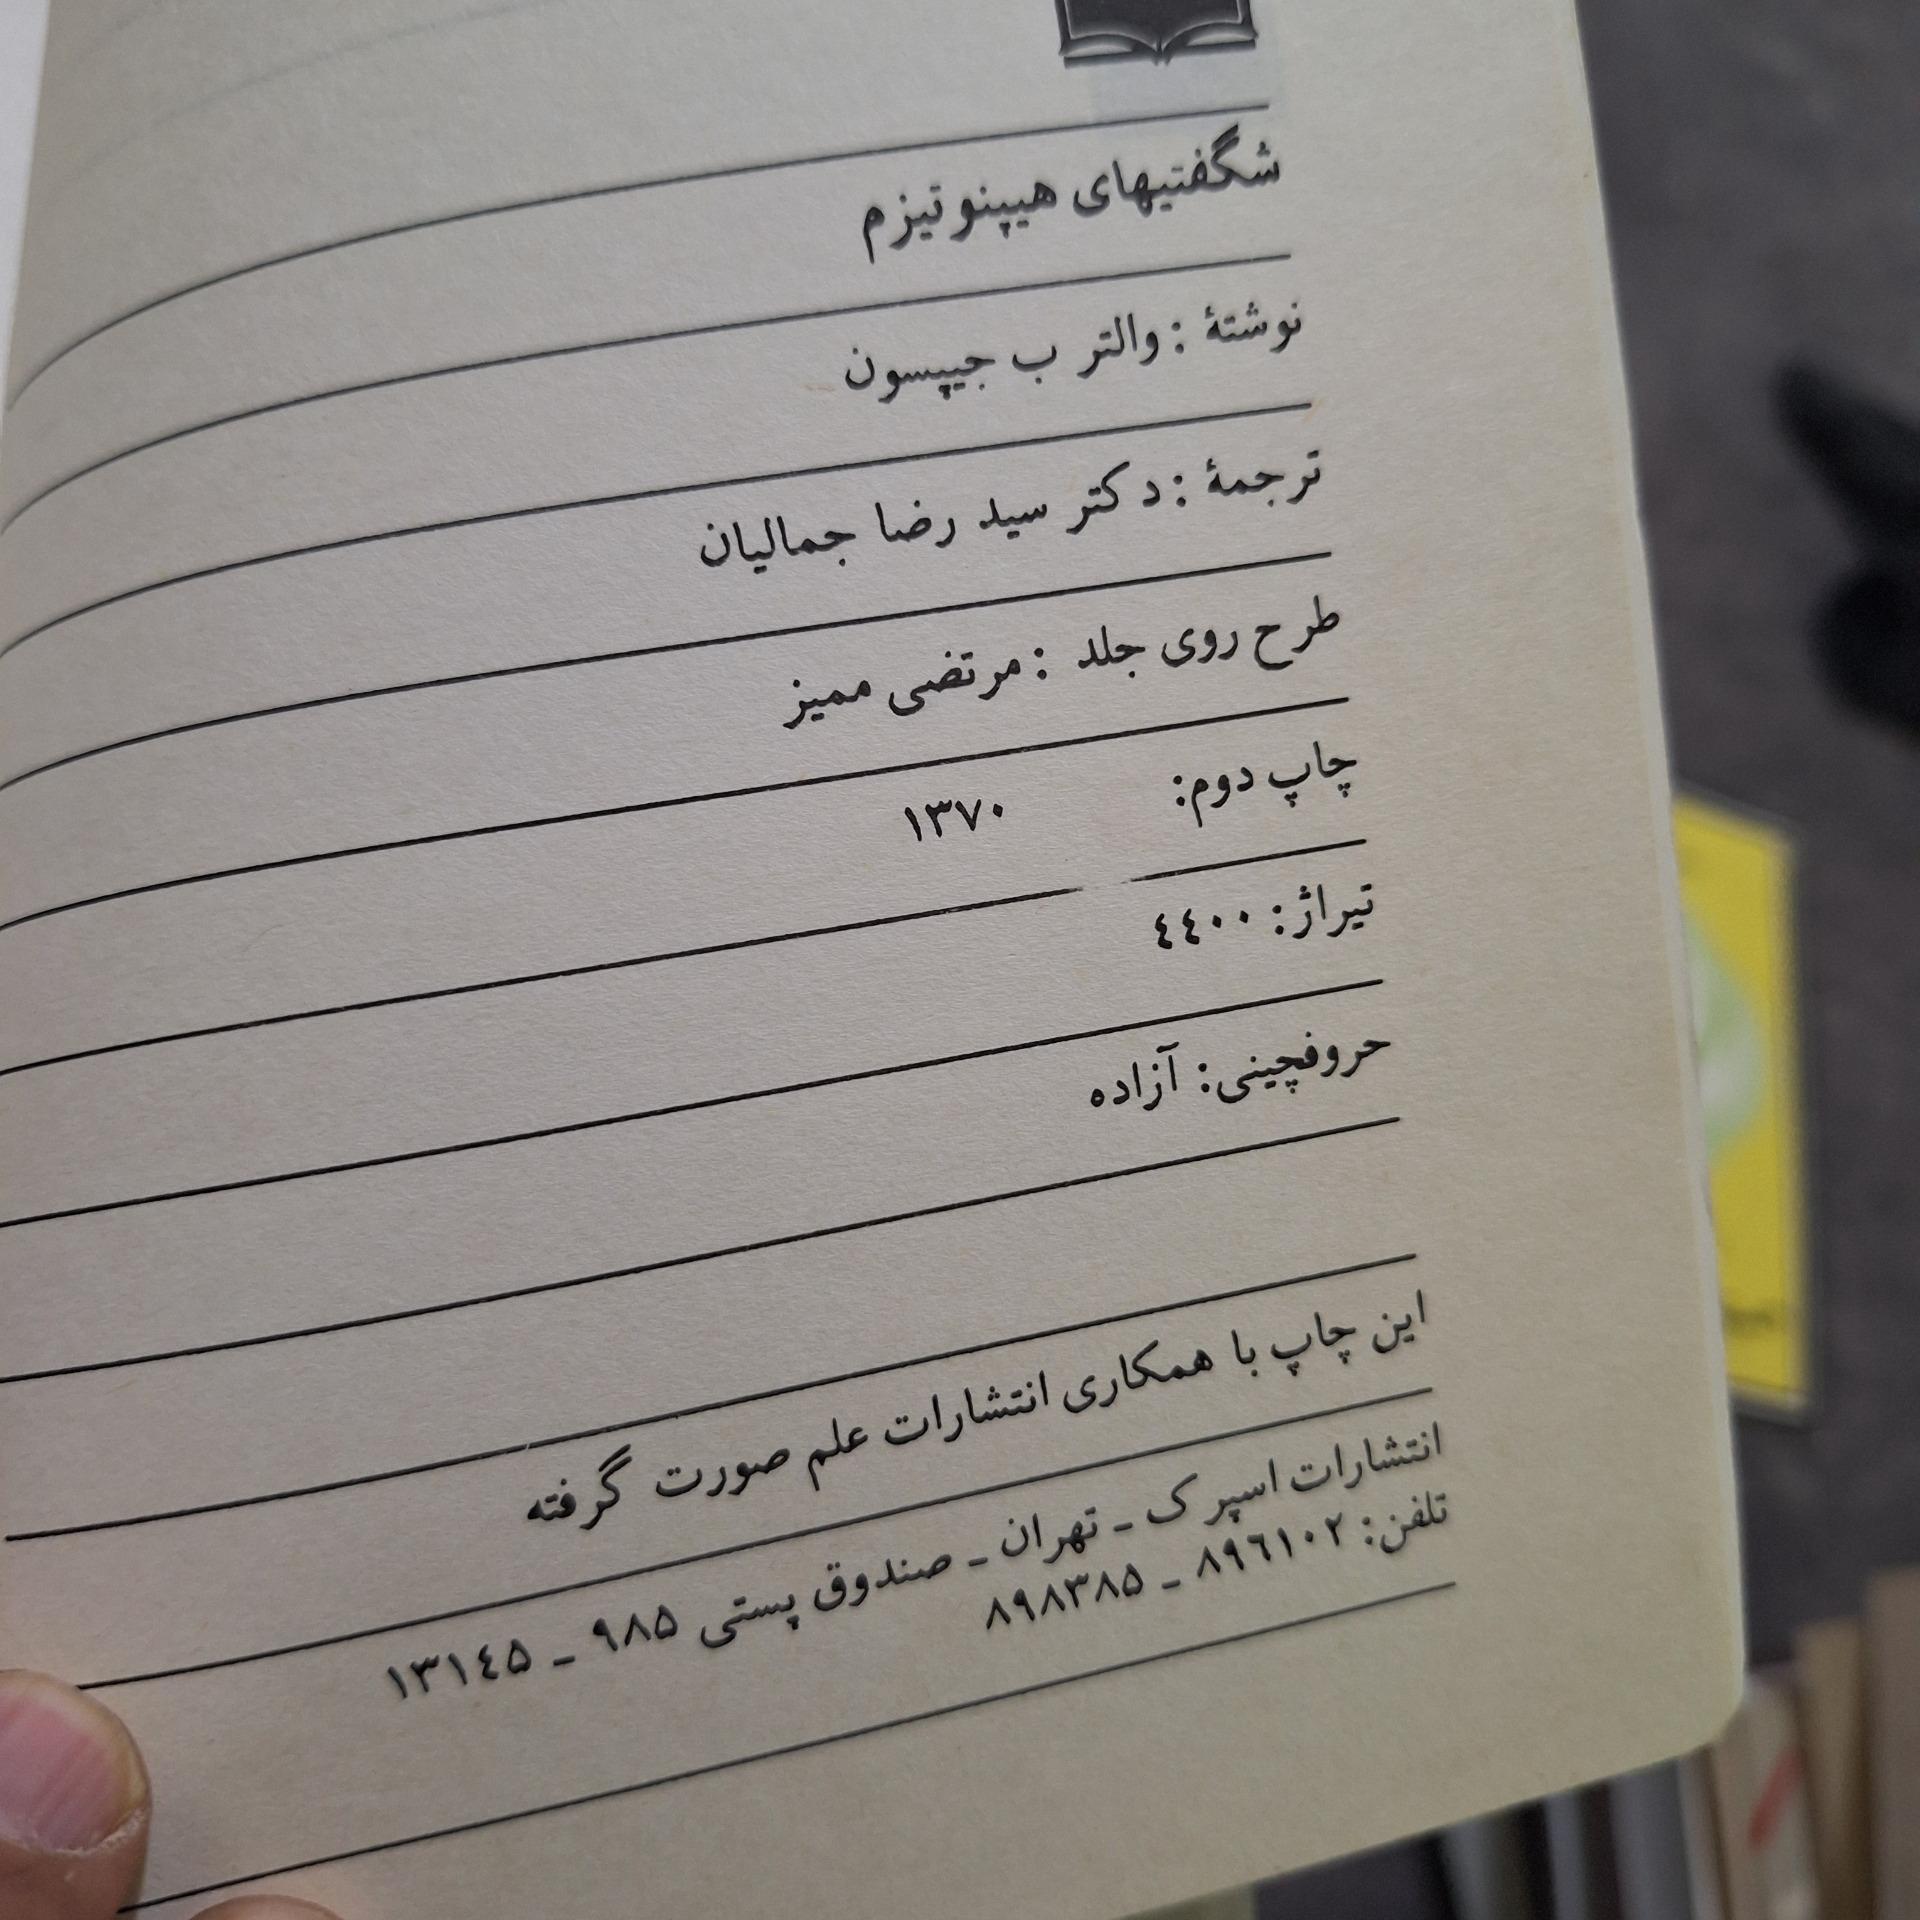 شگفتیهای هیپنوتیزم
نوشتهٔ : والتر ب جیپسون
ترجمهٔ : دکتر سید رضا جمالیان
طرح روی جلد : مرتضی ممیز
چاپ دوم: ۱۳۷۰
تیراژ: ٤٤۰۰
حروفچینی: آزاده
این چاپ با همکاری انتشارات علم صورت گرفته
انتشارات اسپرک ـ تهران ـ صندوق پستی ۹۸۵ ـ ۱۳۱٤۵
تلفن: ۸۹٦۱۰۲ ـ ۸۹۸۳۸۵